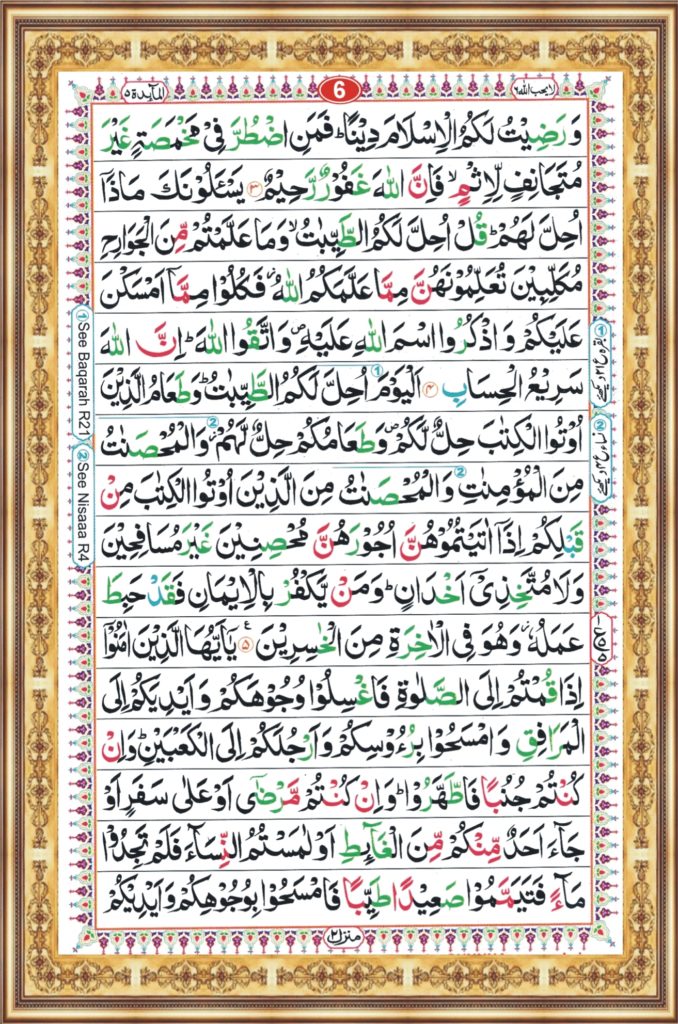 لا يحب الله ٦
6
المآىِٕدة ٥
وَ رَضِیْتُ لَكُمُ الْاِسْلَامَ دِیْنًا ؕ فَمَنِ اضْطُرَّ فِیْ مَخْمَصَةٍ غَیْرَ
مُتَجَانِفٍ لِّاِثْمٍ ۙ فَاِنَّ اللّٰهَ غَفُوْرٌ رَّحِیْمٌ ۝۳ یَسْـَٔلُوْنَكَ مَاذَاۤ
اُحِلَّ لَهُمْ ؕ قُلْ اُحِلَّ لَكُمُ الطَّیِّبٰتُ ۙ وَ مَا عَلَّمْتُمْ مِّنَ الْجَوَارِحِ
مُكَلِّبِیْنَ تُعَلِّمُوْنَهُنَّ مِمَّا عَلَّمَكُمُ اللّٰهُ ؗ فَكُلُوْا مِمَّاۤ اَمْسَكْنَ
عَلَیْكُمْ وَ اذْكُرُوا اسْمَ اللّٰهِ عَلَیْهِ ۪ وَ اتَّقُوا اللّٰهَ ؕ اِنَّ اللّٰهَ
سَرِیْعُ الْحِسَابِ ۝۴ اَلْیَوْمَ ① اُحِلَّ لَكُمُ الطَّیِّبٰتُ ؕ وَ طَعَامُ الَّذِیْنَ
اُوْتُوا الْكِتٰبَ حِلٌّ لَّكُمْ ۪ وَ طَعَامُكُمْ حِلٌّ لَّهُمْ ؗ ② وَ الْمُحْصَنٰتُ
مِنَ الْمُؤْمِنٰتِ ② وَ الْمُحْصَنٰتُ مِنَ الَّذِیْنَ اُوْتُوا الْكِتٰبَ مِنْ
قَبْلِكُمْ اِذَاۤ اٰتَیْتُمُوْهُنَّ اُجُوْرَهُنَّ مُحْصِنِیْنَ غَیْرَ مُسَافِحِیْنَ
وَ لَا مُتَّخِذِیْۤ اَخْدَانٍ ؕ وَ مَنْ یَّكْفُرْ بِالْاِیْمَانِ فَقَدْ حَبِطَ
عَمَلُهٗ ؗ وَ هُوَ فِی الْاٰخِرَةِ مِنَ الْخٰسِرِیْنَ ۝۵ یٰۤاَیُّهَا الَّذِیْنَ اٰمَنُوْۤا
اِذَا قُمْتُمْ اِلَى الصَّلٰوةِ فَاغْسِلُوْا وُجُوْهَكُمْ وَ اَیْدِیَكُمْ اِلَى
الْمَرَافِقِ وَ امْسَحُوْا بِرُءُوْسِكُمْ وَ اَرْجُلَكُمْ اِلَى الْكَعْبَیْنِ ؕ وَ اِنْ
كُنْتُمْ جُنُبًا فَاطَّهَّرُوْا ؕ وَ اِنْ كُنْتُمْ مَّرْضٰۤى اَوْ عَلٰى سَفَرٍ اَوْ
جَآءَ اَحَدٌ مِّنْكُمْ مِّنَ الْغَآىِٕطِ اَوْ لٰمَسْتُمُ النِّسَآءَ فَلَمْ تَجِدُوْا
مَآءً فَتَیَمَّمُوْا صَعِیْدًا طَیِّبًا فَامْسَحُوْا بِوُجُوْهِكُمْ وَ اَیْدِیْكُمْ
منزل ٢
① See Baqarah R21
② See Nisaaa R4